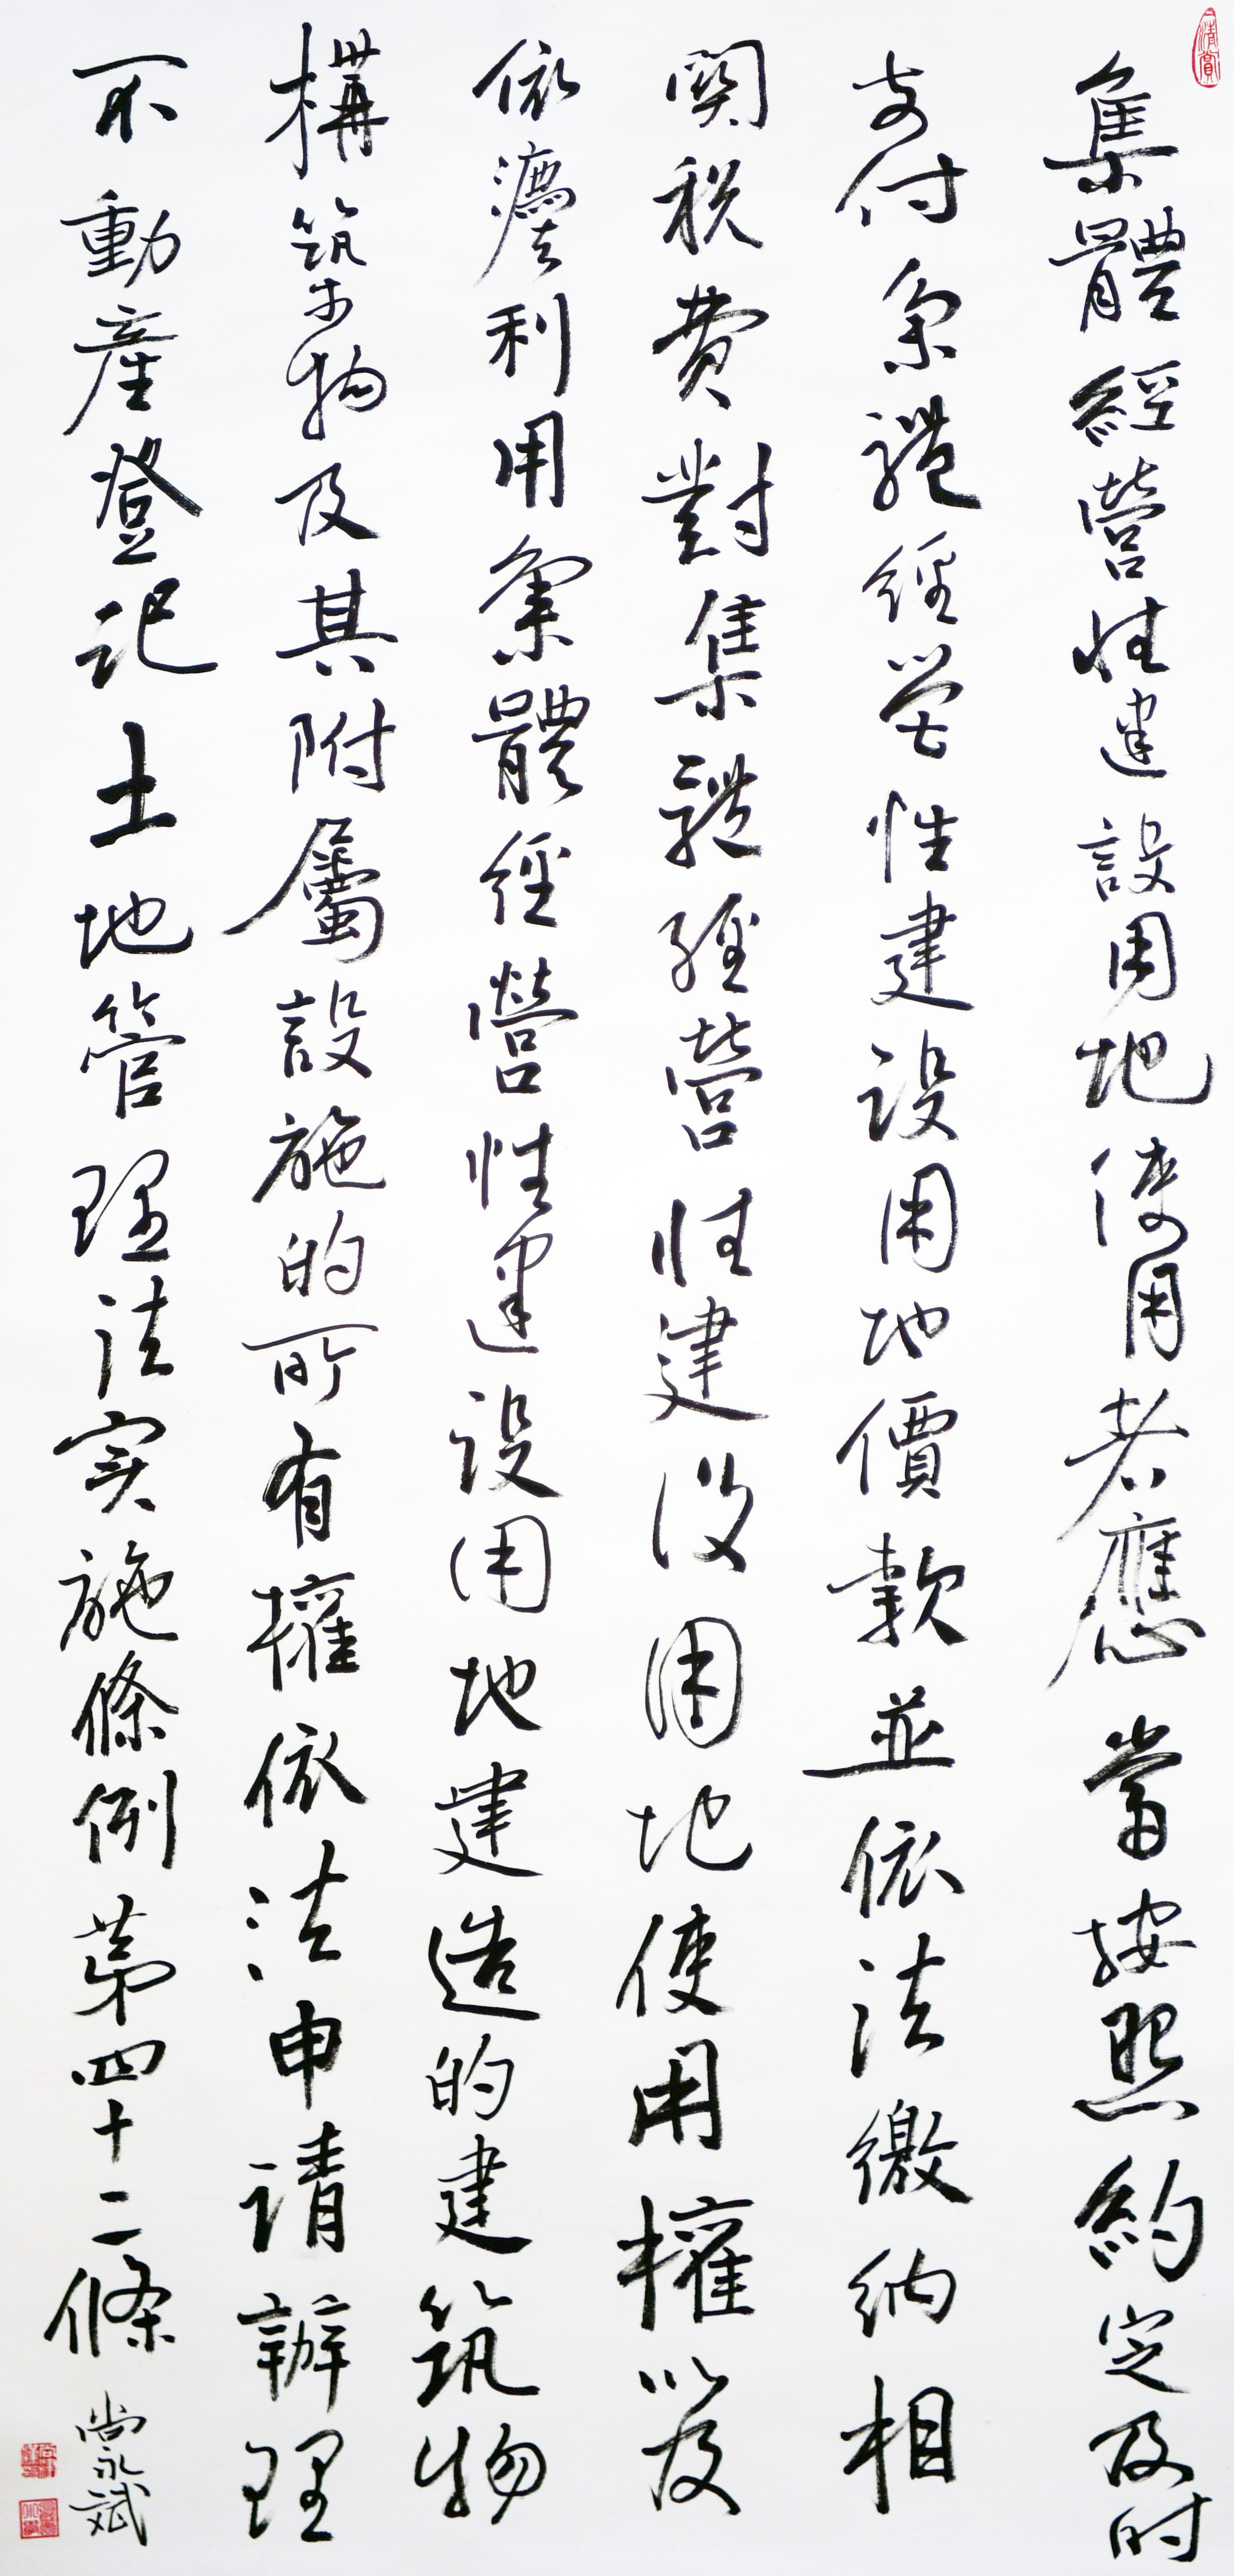 集體經營性建設用地使用者應當按照約定及時
支付集體經營性建设用地價款並依法繳納相
関税費對集體經營性建设用地使用權以及
依灋利用集體經營性建设用地建造的建筑物
構築物及其附屬設施的所有權依法申请辦理
不動產登记土地管理法实施條例第四十二條
尚永斌
清賞